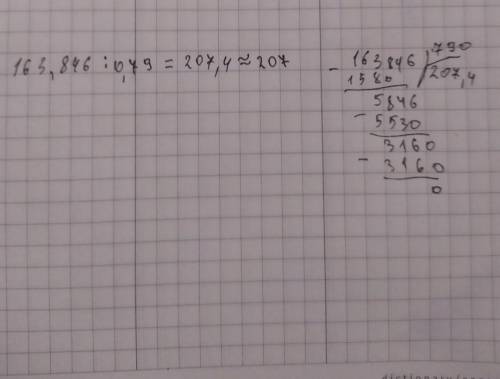 163,846 : 0,79 = 207,4 ≈ 207
- 163846 / 790
1580 / 207,4
5846
- 5530
3160
- 3160
0